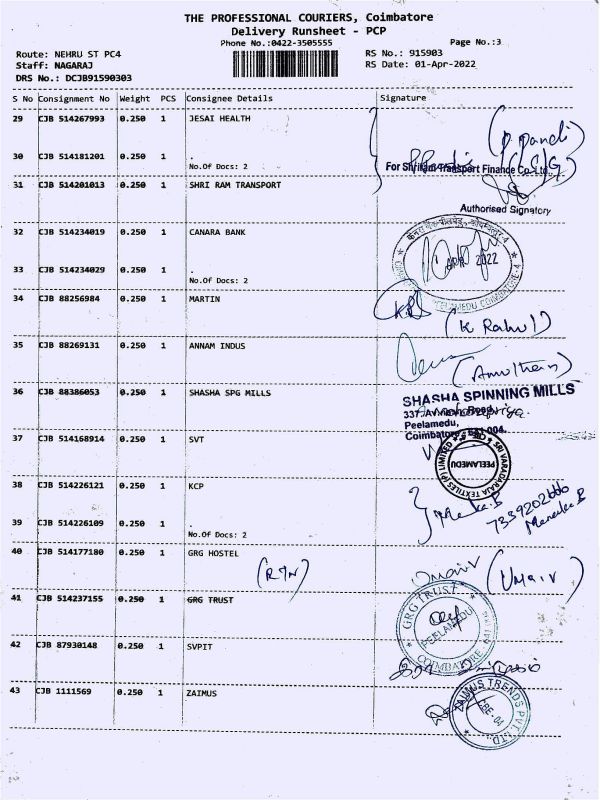 THE PROFESSIONAL COURIERS, Coimbatore
Delivery Runsheet - PCP
Phone No.:0422-3505555
Page No.:3
Route: NEHRU ST PC4
RS No.: 915903
Staff: NAGARAJ
RS Date: 01-Apr-2022
DRS No.: DCJB91590303
S No Consignment No Weight PCS Consignee Details Signature
29 CJB 514267993 0.250 1 JESAI HEALTH
30 CJB 514181201 0.250 1 .
No.Of Docs: 2
For Shriram Transport Finance Co.Ltd.,
31 CJB 514201013 0.250 1 SHRI RAM TRANSPORT
Authorised Signatory
32 CJB 514234019 0.250 1 CANARA BANK
33 CJB 514234029 0.250 1 .
APR 2022
No.Of Docs: 2
PEELAMEDU COIMBATORE-4
34 CJB 88256984 0.250 1 MARTIN
(K Rahul)
35 CJB 88269131 0.250 1 ANNAM INDUS
36 CJB 88386053 0.250 1 SHASHA SPG MILLS
SHASHA SPINNING MILLS
337, Avinashi Road,
Peelamedu,
Coimbatore - 641 004.
37 CJB 514168914 0.250 1 SVT
SRI VARADARAJA TEXTILES (P) LIMITED
PEELAMEDU
38 CJB 514226121 0.250 1 KCP
Menaka B
7339202666
Menaka B
39 CJB 514226109 0.250 1 .
No.Of Docs: 2
40 CJB 514177180 0.250 1 GRG HOSTEL
Umair (Umair)
41 CJB 514237155 0.250 1 GRG TRUST
GRG TRUST
PEELAMEDU
COIMBATORE 641
42 CJB 87930148 0.250 1 SVPIT
43 CJB 1111569 0.250 1 ZAIMUS
ZAIMUS TRENDS PVT. LTD.
CBE - 04